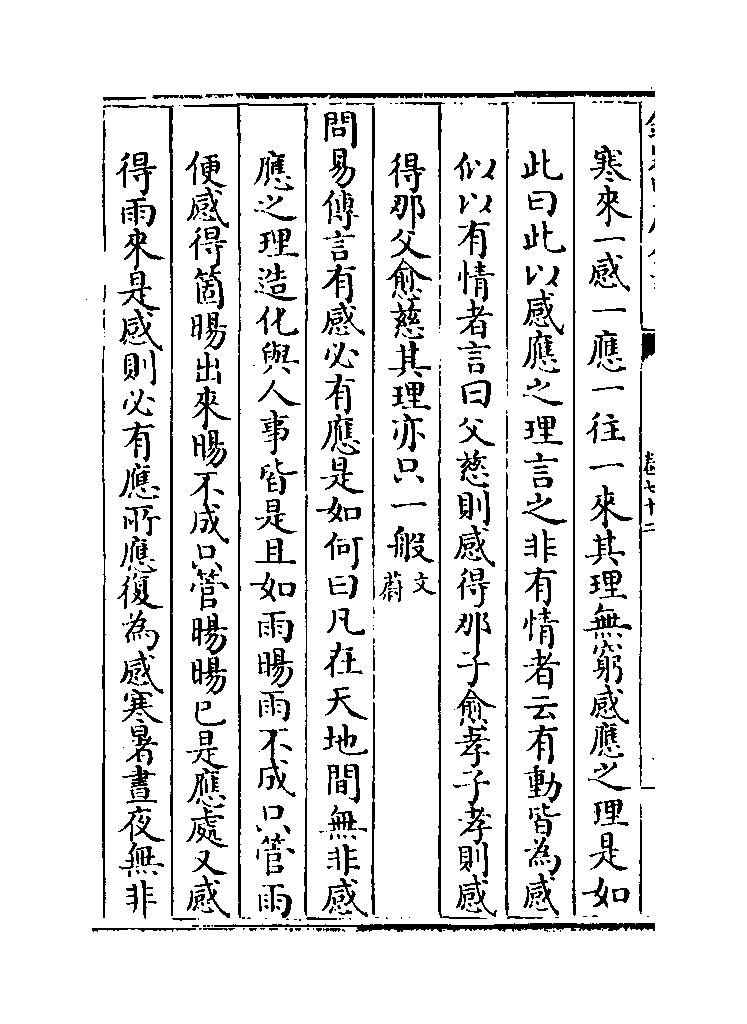 卷七十二
寒來一感一應一往一來其理無窮感應之理是如
此曰此以感應之理言之非有情者云有動皆為感
似以有情者言曰父慈則感得那子愈孝子孝則感
得那父愈慈其理亦只一般文蔚
問易傳言有感必有應是如何曰凡在天地間無非感
應之理造化與人事皆是且如雨暘雨不成只管雨
便感得箇暘出來暘不成只管暘暘已是應處又感
得雨來是感則必有應所應復為感寒暑晝夜無非